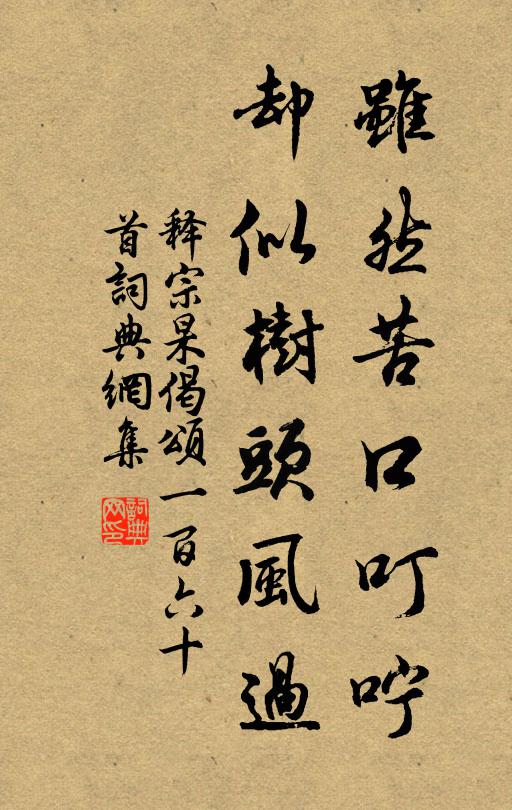 雖然苦口叮咛
却似樹頭風過
释宗杲偈頌一百六十
首詞典網集
詞典网印